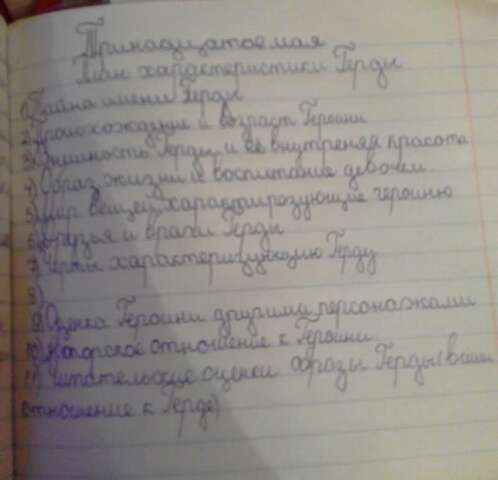 Тринадцатое мая
План характеристики Герды
1) Тайна имени Герды
2) Происхождение и возраст Героини
3) Внешность Герды и её внутреняя красота
4) Образ жизни и воспитание девочки
5) Мир вещей, характиризующие героиню
6) Друзья и враги Герды
7) Черты характеризующию Герду
8)
9) Оценка Героини другими персонажами
10) Авторское отношение к Героини
11) Читательские оценки образы Герды (ваши
отношение к Герде)